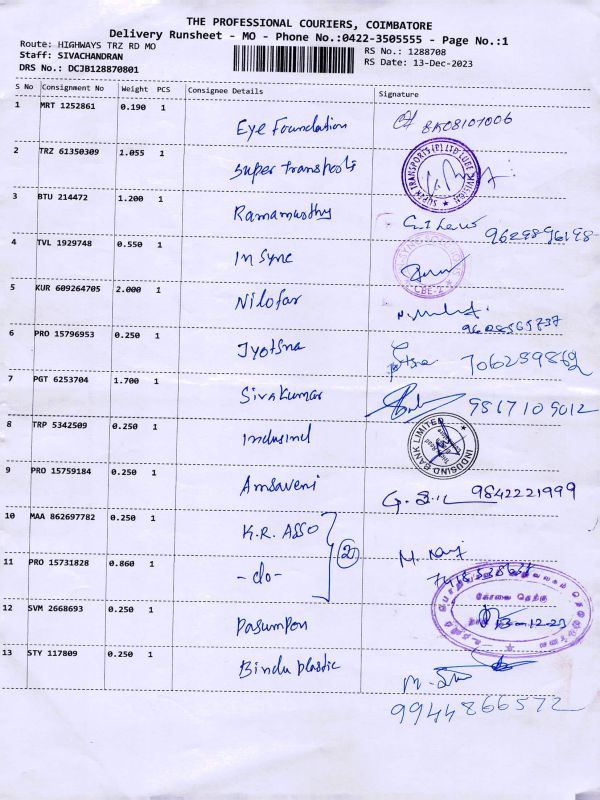 THE PROFESSIONAL COURIERS, COIMBATORE
Delivery Runsheet - MO - Phone No.:0422-3505555 - Page No.:1
Route: HIGHWAYS TRZ RD MO
RS No.: 1288708
Staff: SIVACHANDRAN
RS Date: 13-Dec-2023
DRS No.: DCJB128870801
S No Consignment No Weight PCS Consignee Details Signature
1 MRT 1252861 0.190 1 Eye Foundation BK08107006
2 TRZ 61350309 1.055 1 Super transports
3 BTU 214472 1.200 1 Ramamurthy
4 TVL 1929748 0.550 1 In Sync
CBE-2
5 KUR 609264705 2.000 1 Nilofar
6 PRO 15796953 0.250 1 Jyotsna 7062598692
7 PGT 6253704 1.700 1 Sivakumar 9567109012
8 TRP 5342509 0.250 1 Indusind INDUSIND BANK LIMITED
9 PRO 15759184 0.250 1 Amsaveni 9842221999
10 MAA 862697782 0.250 1 K.R. ASSO
(2)
11 PRO 15731828 0.860 1 -do-
கோவை தெற்கு
12 SVM 2668693 0.250 1 Pasumpon 13-12-23
13 STY 117809 0.250 1 Bindu plastic
9944866572